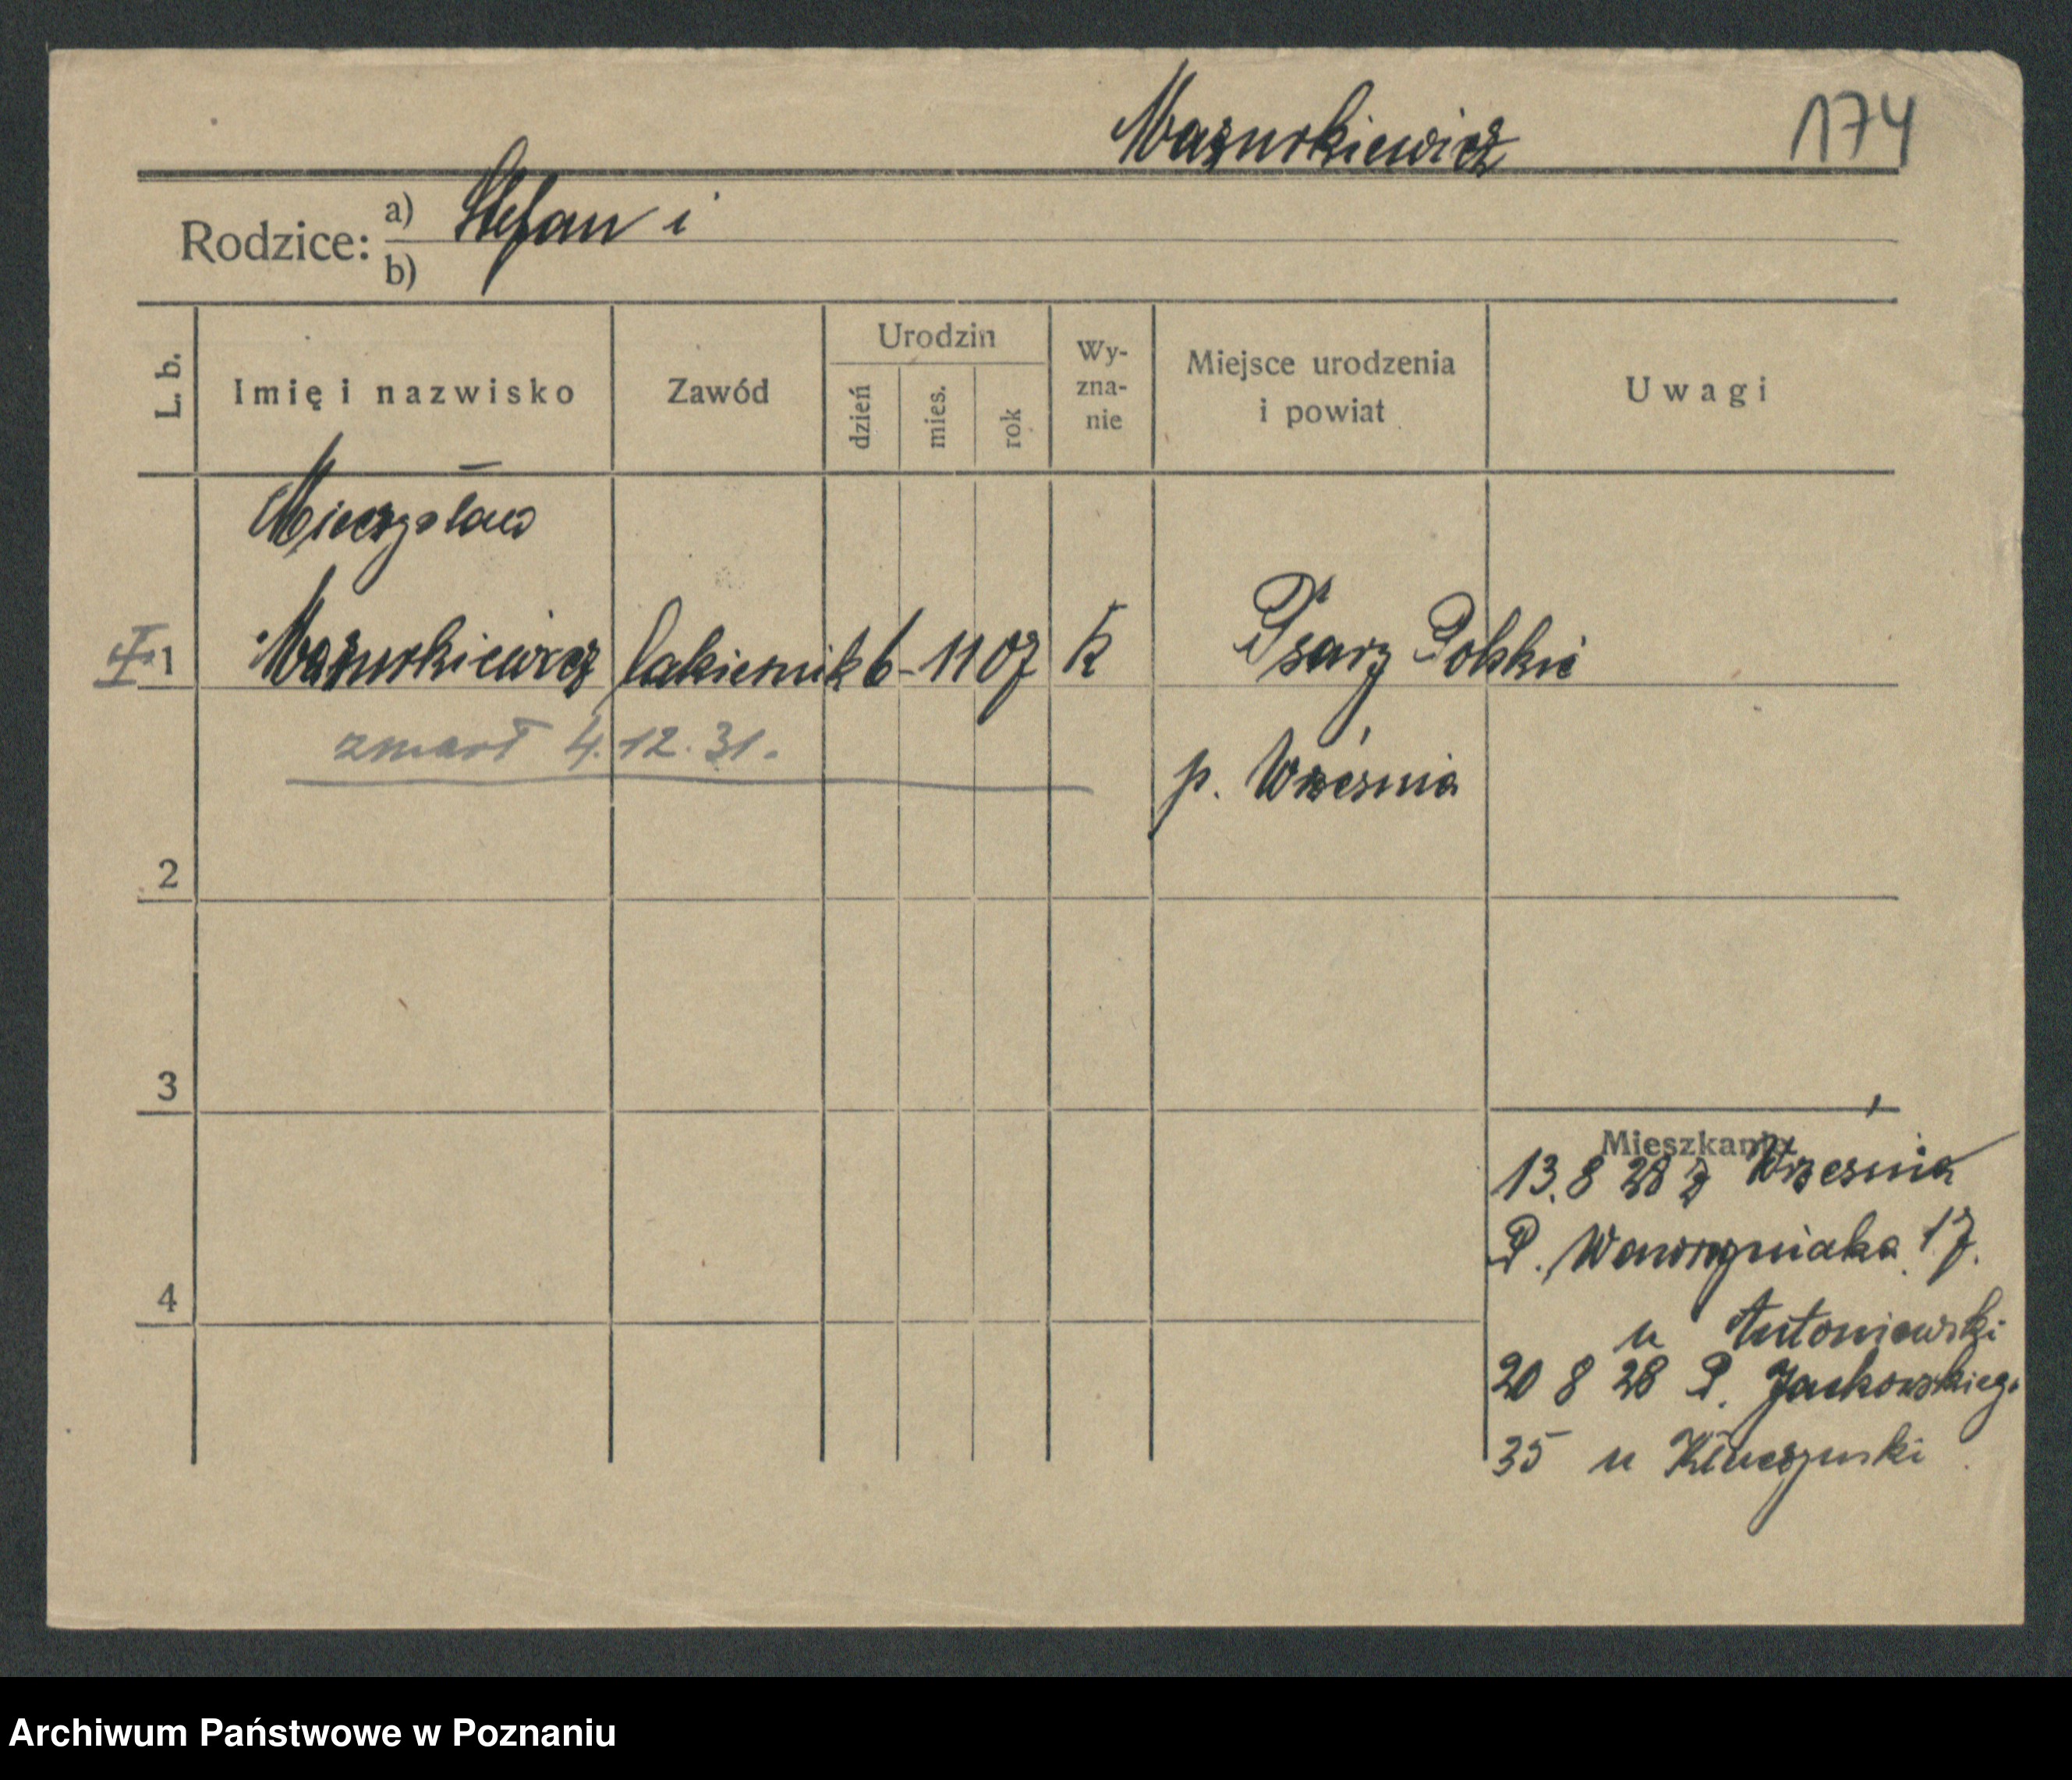 Mazurkiewicz 174
Rodzice: a) Stefan i
b)
L. b. Imię i nazwisko Zawód Urodzin dzień mies. rok Wy-zna-nie Miejsce urodzenia i powiat Uwagi
Mieczysław
1 Mazurkiewicz lakiernik 6 - 11 07 k Psary Polskie
zmarł 4.12.31.
p. Września
2
3
Mieszkanie
13.8 28 z Września
P. Wawrzyniaka 17.
4
u Antoniewski
20 8 28 P. Jackowskiego
35 u
Archiwum Państwowe w Poznaniu